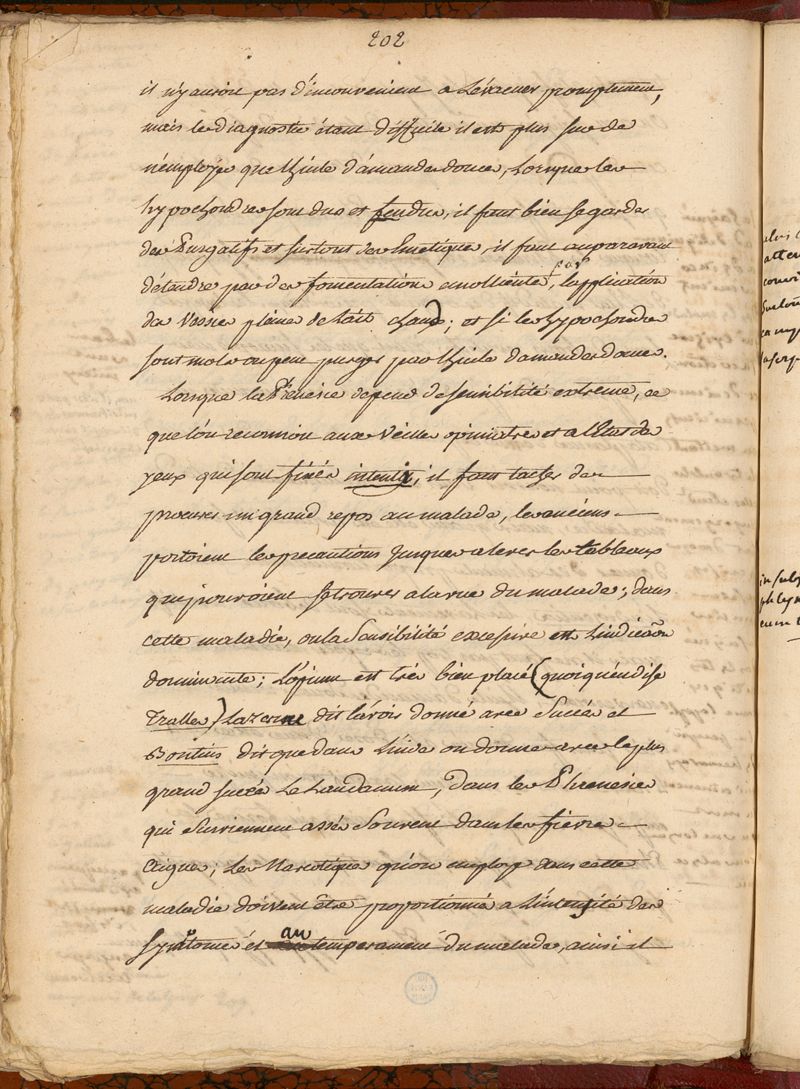 202
il n'y auroit pas d'inconvenient a L'évacuer promptement,
mais le diagnostic étant difficile il est plus sur de
n'employer que Lhuile d'amandes douce, Lorsque les
hypochondres sont durs et tendus, il faut bien se garder
des Purgatifs et surtout des Emetiques, il faut auparavant
détendre par des fomentations emollientes, par L'application
de Vessies pleines de Lait chaud; et si les hypochondres
sont mols on peut purger par Lhuile damandes douces.
Lorsque la Phrenesie depend de sensibilité extreme, ce
que lon reconnoit aux Veilles opiniatres et a l'Etat des
yeux qui sont fixés intentis, il faut tacher de
procurer un grand repos au malade, les anciens
portoient les precautions jusques a lever les tableaux
qui pouvoient se trouver a la vue du malade; dans
cette maladie, ou la Sensibilité excessive est Lindication
dominante; L'opium est très bien placé (quoiqu'en dise
Tralles) Lazerme dit lavoir donné avec Succès et
Bontius dit que dans Linde on donne avec le plus
grand succès Le Laudanum, dans les Phrenesies
qui Surviennent assés Souvent dans les fievres
aigues; Les Narcotiques qu'on employe dans cette
maladie doivent être proportionnés a L'intensité des
Symtomes et au temperament du malade, ainsi il